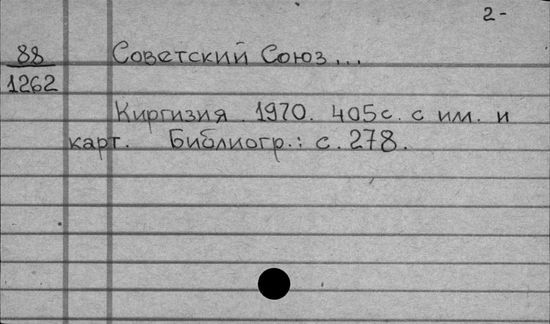 2-
88 Советский Союз...
1262
Киргизия. 1970. 405с. с им. и
карт. Библиогр.: с. 278.